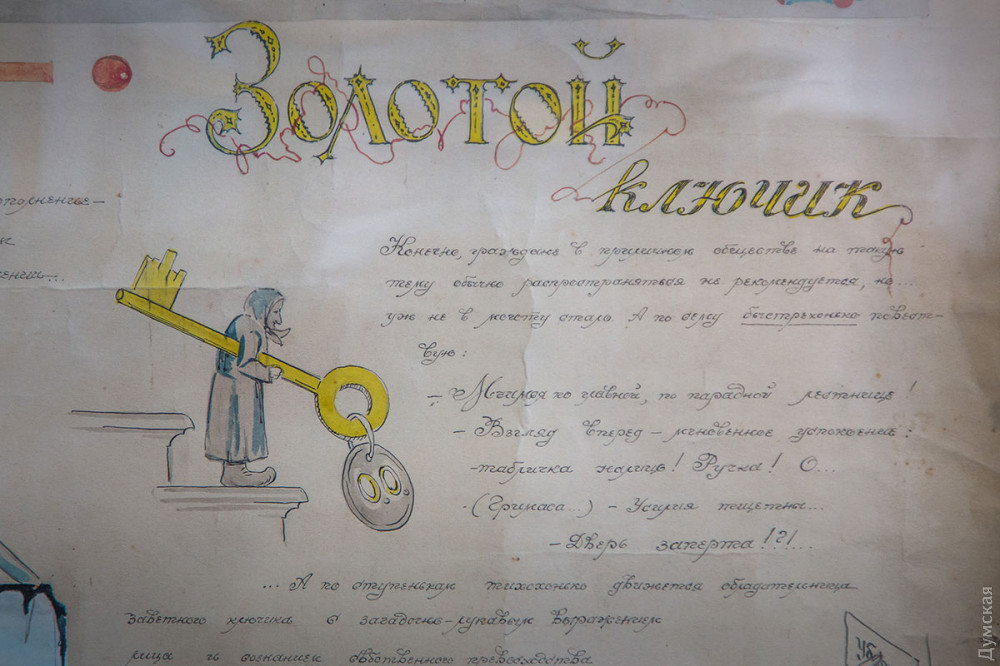 Золотой
ключик
Конечно, граждане в приличном обществе на такую
тему обычно распространяться не рекомендуется, но...
уж не в мочоту стало. А по сему быстрехонько повест-
вую:
– Мчимся по главной, по парадной лестнице!
– Взгляд вперед – мгновенное успокоение:
-табличка налицо! Ручка! О...
-(Гримаса...) – Усилия тщетны...
– Дверь заперта!?!...
... А по ступенькам тихохонько движется обладательница
заветного ключика с загадочно-лукавым выражением
лица и сознанием собственного превосходства
00
Думская